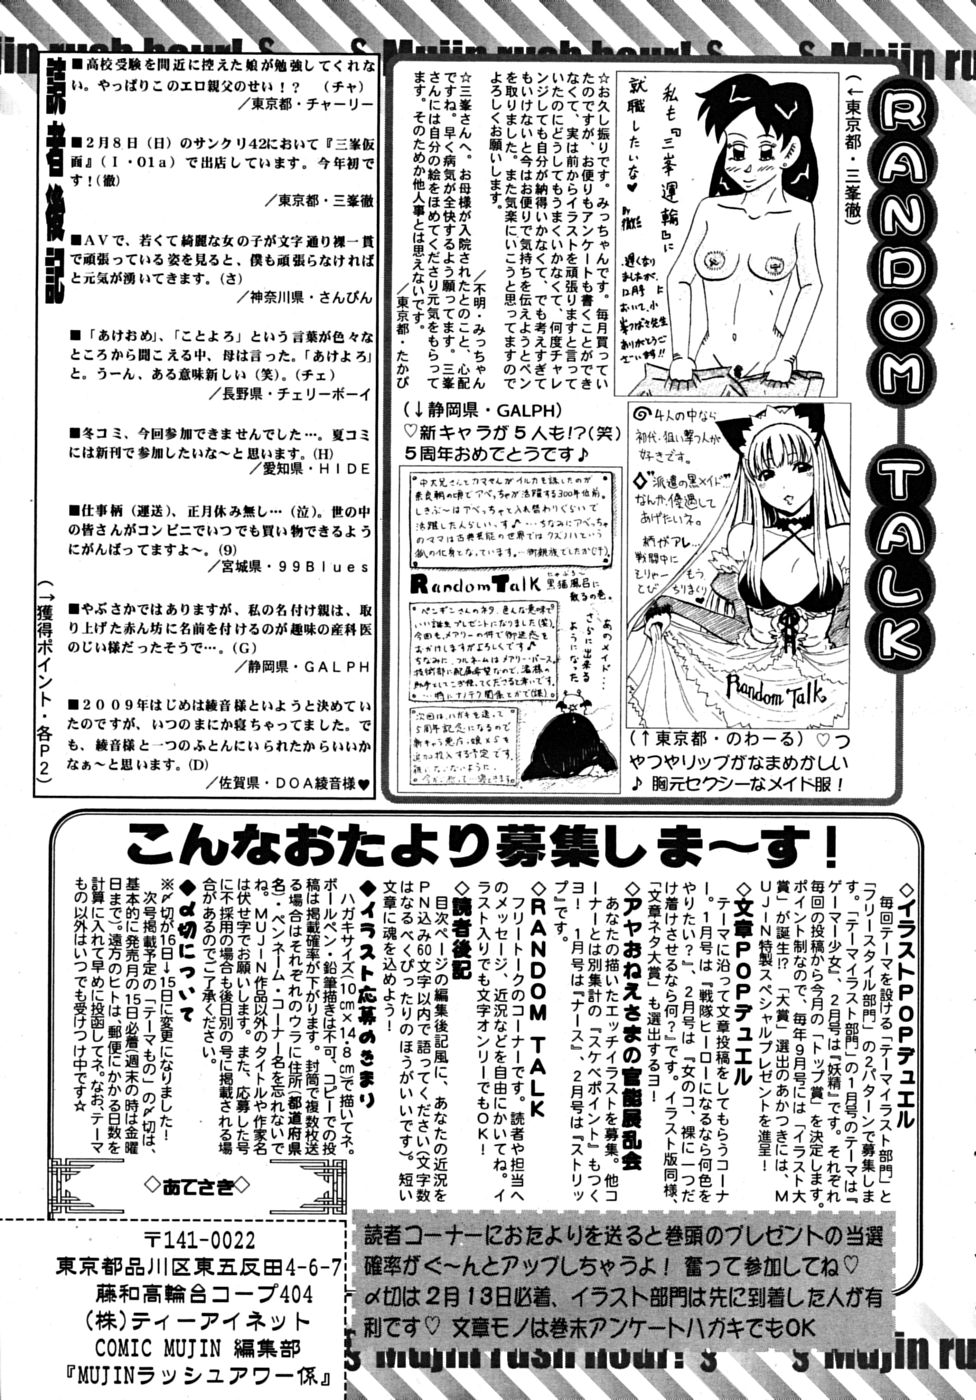 Mujin rush hour!
RANDOM TALK
(←東京都・三峯徹)
私も『三峯運輸』に
就職したいな♡
by徹
遅くなり
ましたが、
12月号に
おいて、小
峯つばさ先生
ありがとうご
ざいます!!
☆お久し振りです。みっちゃんです。毎月買ってい
たのですが、お便りもアンケートも書くことができ
なくて、実は前からイラストを頑張りますと言って
いたのにどうしてもうまくいかなくて、何度チャレ
ンジしても自分が納得いかなくて、でも考えすぎて
もいけないと今はお便りで気持ちを伝えようとペン
を取りました。また気楽にいこうと思ってますので
よろしくお願いします。
／不明・みっちゃん
☆三峯さんへ。お母様が入院されたとのこと、心配
ですね。早く病気が全快するよう願ってます。三峯
さんには自分の絵をほめてくださり元気をもらって
ます。そのためか他人事とは思えないです。
／東京都・たかぴ
(↓静岡県・GALPH)
♡新キャラが5人も!?(笑)
5周年おめでとうです♪
中大兄さんとカマさんがイルカを話したのが
奈良朝の頃でアベっちゃが活躍する300年位前。
しきぶーはアベっちゃと入れ替わりぐらいで
活躍した人らしいっす♪…ちなみにアベっちゃ
のママは古典芸能の世界ではクズノハという
狐の化身となっています。
Random Talk
黒猫風呂に
散るの巻。
あのメイド…
さらに出来る
ようになった
4人の中なら
初代・狙い撃つ人が
好きです。
◇“派遣の黒メイド”
なんか優遇して
あげたいネ。
柄がアレ…
戦闘中に
そりゃーもう
とびちりまくり
Random Talk
(↑東京都・のわーる) ♡つ
やつやリップがなまめかしい
♪ 胸元セクシーなメイド服!
読者後記
■高校受験を間近に控えた娘が勉強してくれな
い。やっぱりこのエロ親父のせい!? (チャ)
／東京都・チャーリー
■2月8日(日)のサンクリ42において『三峯仮
面』(I・01a)で出店しています。今年初で
す!(徹)
／東京都・三峯徹
■AVで、若くて綺麗な女の子が文字通り裸一貫
で頑張っている姿を見ると、僕も頑張らなければ
と元気が湧いてきます。(さ)
／神奈川県・さんぴん
■「あけおめ」、「ことよろ」という言葉が色々な
ところから聞こえる中、母は言った。「あけよろ」
と。うーん、ある意味新しい(笑)。(チェ)
／長野県・チェリーボーイ
■冬コミ、今回参加できませんでした…。夏コミ
には新刊で参加したいな～と思います。(H)
／愛知県・HIDE
■仕事柄(運送)、正月休み無し…(泣)。世の中
の皆さんがコンビニでいつでも買い物できるよう
にがんばってますよ～。(9)
／宮城県・99Blues
■やぶさかではありますが、私の名付け親は、取
り上げた赤ん坊に名前を付けるのが趣味の産科医
のじい様だったそうで…。(G)
／静岡県・GALPH
■2009年はじめは綾音様といようと決めてい
たのですが、いつのまにか寝ちゃってました。で
も、綾音様と一つのふとんにいられたからいいか
なぁ～と思います。(D)
／佐賀県・DOA綾音様♥
(→獲得ポイント・各P2)
こんなおたより募集しま～す!
◇イラストPOPデュエル
毎回テーマを設ける「テーマイラスト部門」と
「フリースタイル部門」の2パターンで募集しま
す。「テーマイラスト部門」の1月号のテーマは『
ゲーマー少女』、2月号は『妖精』です。それぞれ
毎回の投稿から今月の「トップ賞」を決定します。
ポイント制なので、毎年9月号には「イラスト大
賞」が誕生!?「大賞」選出のあかつきには、M
UJIN特製スペシャルプレゼントを進呈!
◇文章POPデュエル
テーマに沿って文章投稿をしてもらうコーナ
ー。1月号は『戦隊ヒーローになるなら何色を
やりたい?』、2月号は『女のコ、裸に一つだ
け着けさせるなら何?』です。イラスト版同様、
「文章ネタ大賞」も選出するヨ!
◇アヤおねえさまの官能展乱会
あなたの描いたエッチイラストを募集。他コ
ーナーとは別集計の「スケベポイント」もつく
ヨ! 1月号は『ナース』、2月号は『ストリッ
プ』です。
◇RANDOM TALK
フリートークのコーナーです。読者や担当へ
のメッセージ、近況などを自由にかいてね。イ
ラスト入りでも文字オンリーでもOK!
◇読者後記
目次ページの編集後記風に、あなたの近況を
PN込み60文字以内で語ってください(文字数
はなるべくぴったりのほうがいいです)。短い
文章に魂を込めよう!
◆イラスト応募のきまり
ハガキサイズ10cm×14.8cmで描いてネ。
ボールペン・鉛筆描きは不可、コピーでの投
稿は掲載確率が下がります。封筒で複数枚送
る場合はそれぞれのウラに住所(都道府県
名)・ペンネーム・コーナー名を忘れないで
ね。MUJIN作品以外のタイトルや作家名
は伏せ字でお願いします。また、応募した号
に不採用の場合も後日別の号に掲載される場
合があるのでご了承ください。
◆〆切について
※〆切が16日→15日に変更になりました!
次号掲載予定の「テーマもの」の〆切は、
基本的に発売月の15日必着(週末の時は金曜
日まで)。遠方のヒトは、郵便にかかる日数を
計算に入れて早めに投函してネ。なお、テーマ
もの以外はいつでも受けつけ中です☆
◇あてさき◇
〒141-0022
東京都品川区東五反田4-6-7
藤和高輪台コープ404
(株)ティーアイネット
COMIC MUJIN 編集部
『MUJINラッシュアワー係』
読者コーナーにおたよりを送ると巻頭のプレゼントの当選
確率がぐ～んとアップしちゃうよ! 奮って参加してね♡
〆切は2月13日必着、イラスト部門は先に到着した人が有
利です♡ 文章モノは巻末アンケートハガキでもOK
Mujin rush hour!